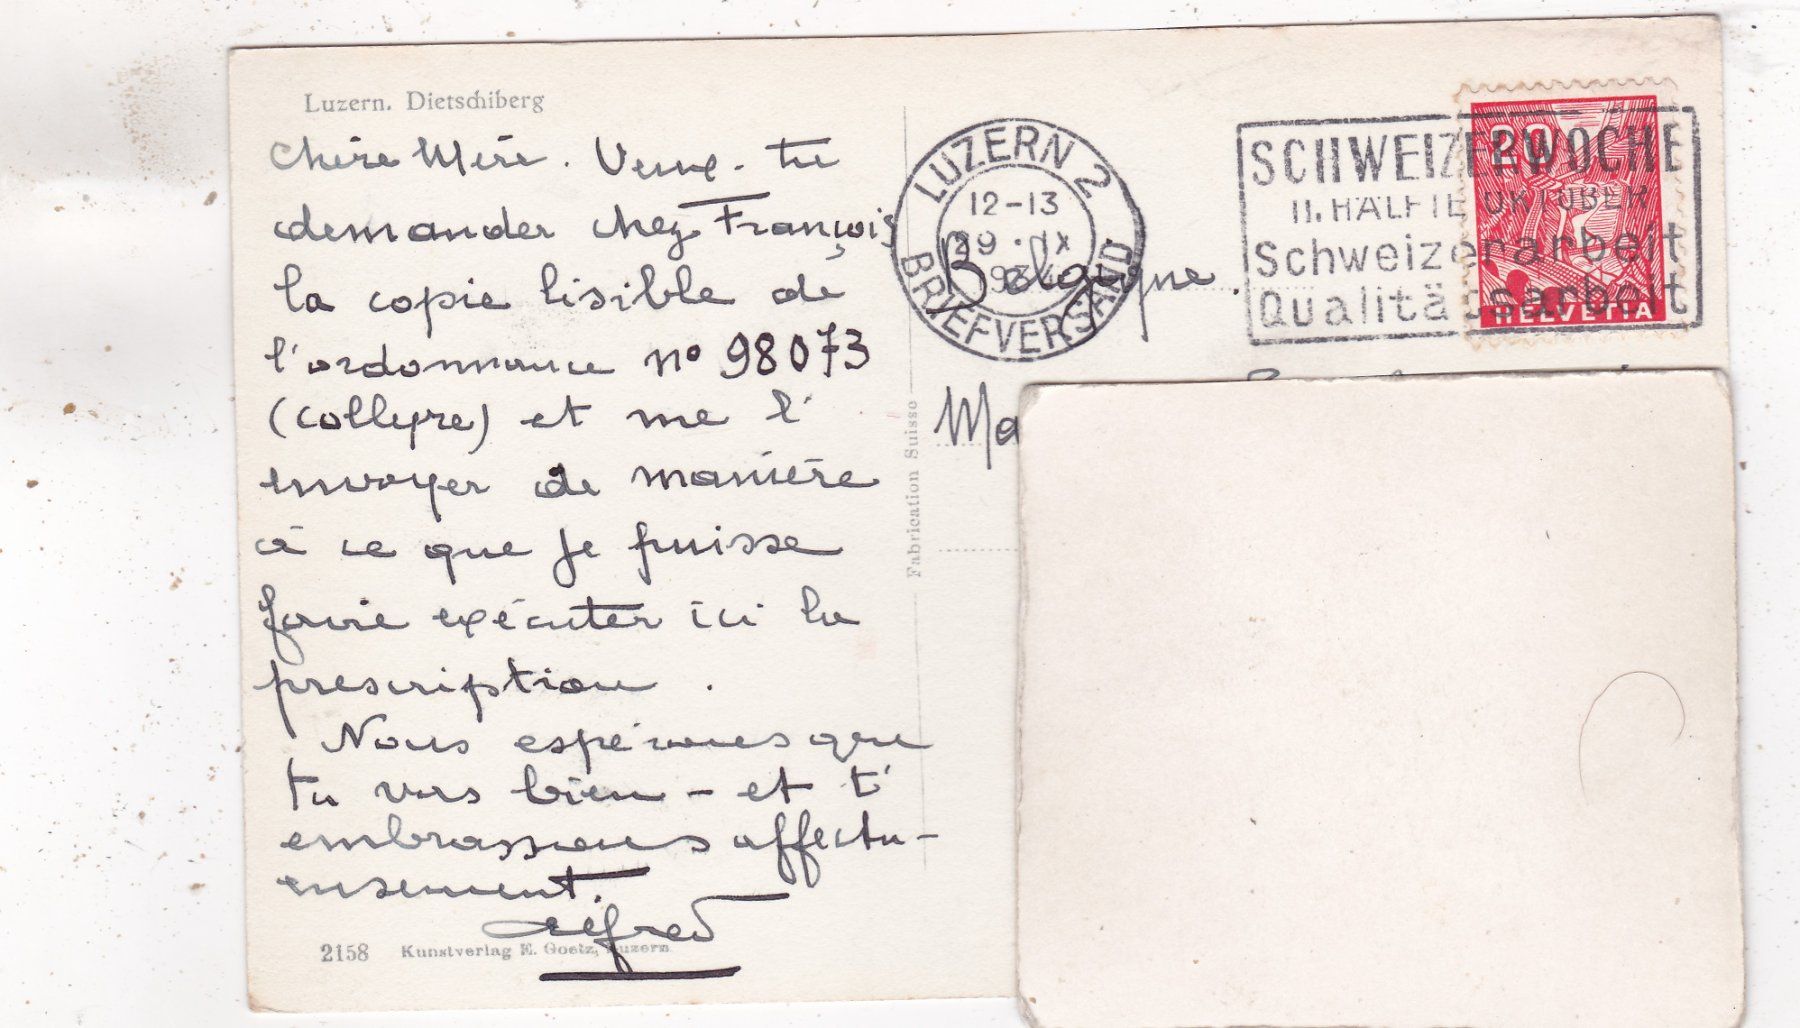 Luzern. Dietschiberg
Chère Mère. Veux-tu
demander chez François
la copie lisible de
l'ordonnance n° 98073
(collyre) et me l'
envoyer de manière
à ce que je puisse
faire exécuter ici la
prescription.
Nous espérons que
tu vas bien - et t'
embrassons affectu-
eusement.
Alfred
2158 Kunstverlag E. Goetz, Luzern
Fabrication Suisse
LUZERN 2
12-13
29·IX
BRIEFVERSAND
SCHWEIZERWOCHE
II. HÄLFTE OKTOBER
Schweizerarbeit
Qualitätsarbeit
20
HELVETIA
Belgique.
Ma